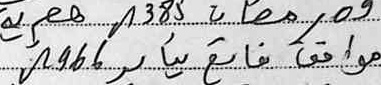 رمضان 1385 هجرية
موافق فاتح يناير 1966